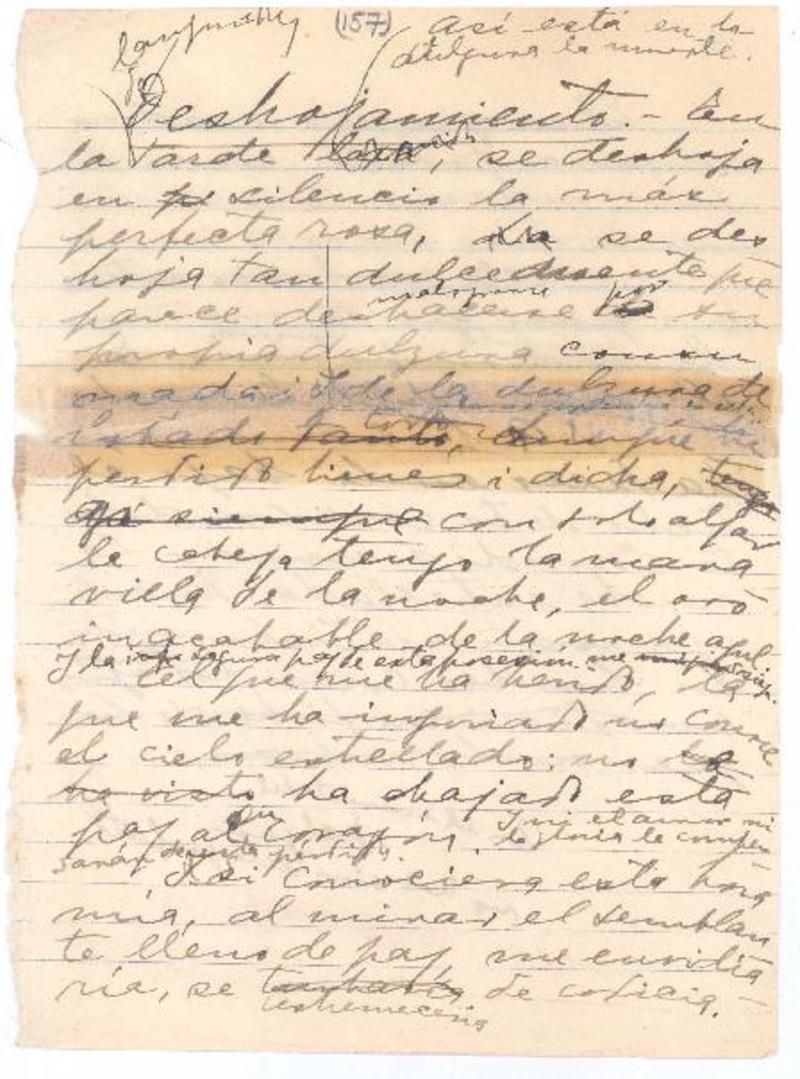 (157)
Así está en la
dulzura la muerte.
Deshojamiento. - En
la tarde, se deshoja
en silencio la más
perfecta rosa, se des
hoja tan dulcemente que
parece deshacerse por su
propia dulzura consu
mada i de la dulzura de
robado tanto, aunque he
perdido bienes i dicha, tengo
siempre con solo alzar
la cabeza tengo la mara
villa de la noche, el oro
inacabable de la noche azul.
I la segura paz de esta posesión
el que me ha herido, la
que me ha injuriado no conoce
el cielo estrellado: no le
ha visto ha bajado esta
paz al corazón. I ni el amor ni
su
la gloria le compen
sarán de esta pérdida.
I si conociera esta hora
mía, al mirar el semblan
te lleno de paz me envidia
ría, se temblaría de codicia. -
estremecería